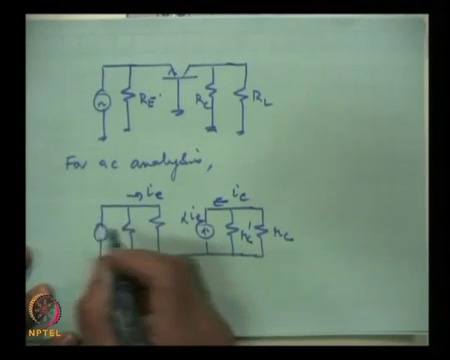 R_E R_C R_L
For ac analysis,
i_e i_c
αi_e r_c' r_c
NPTEL